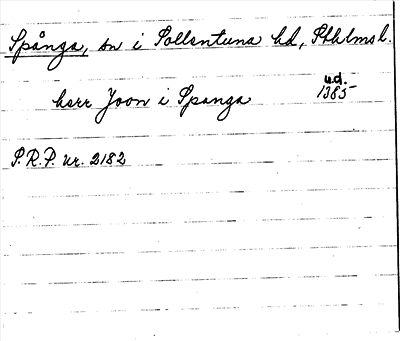 Spånga, sn i Sollentuna hd, Sthlms l.
u.d.
herr Joon i Spanga 1385
S.R.P. nr. 2182